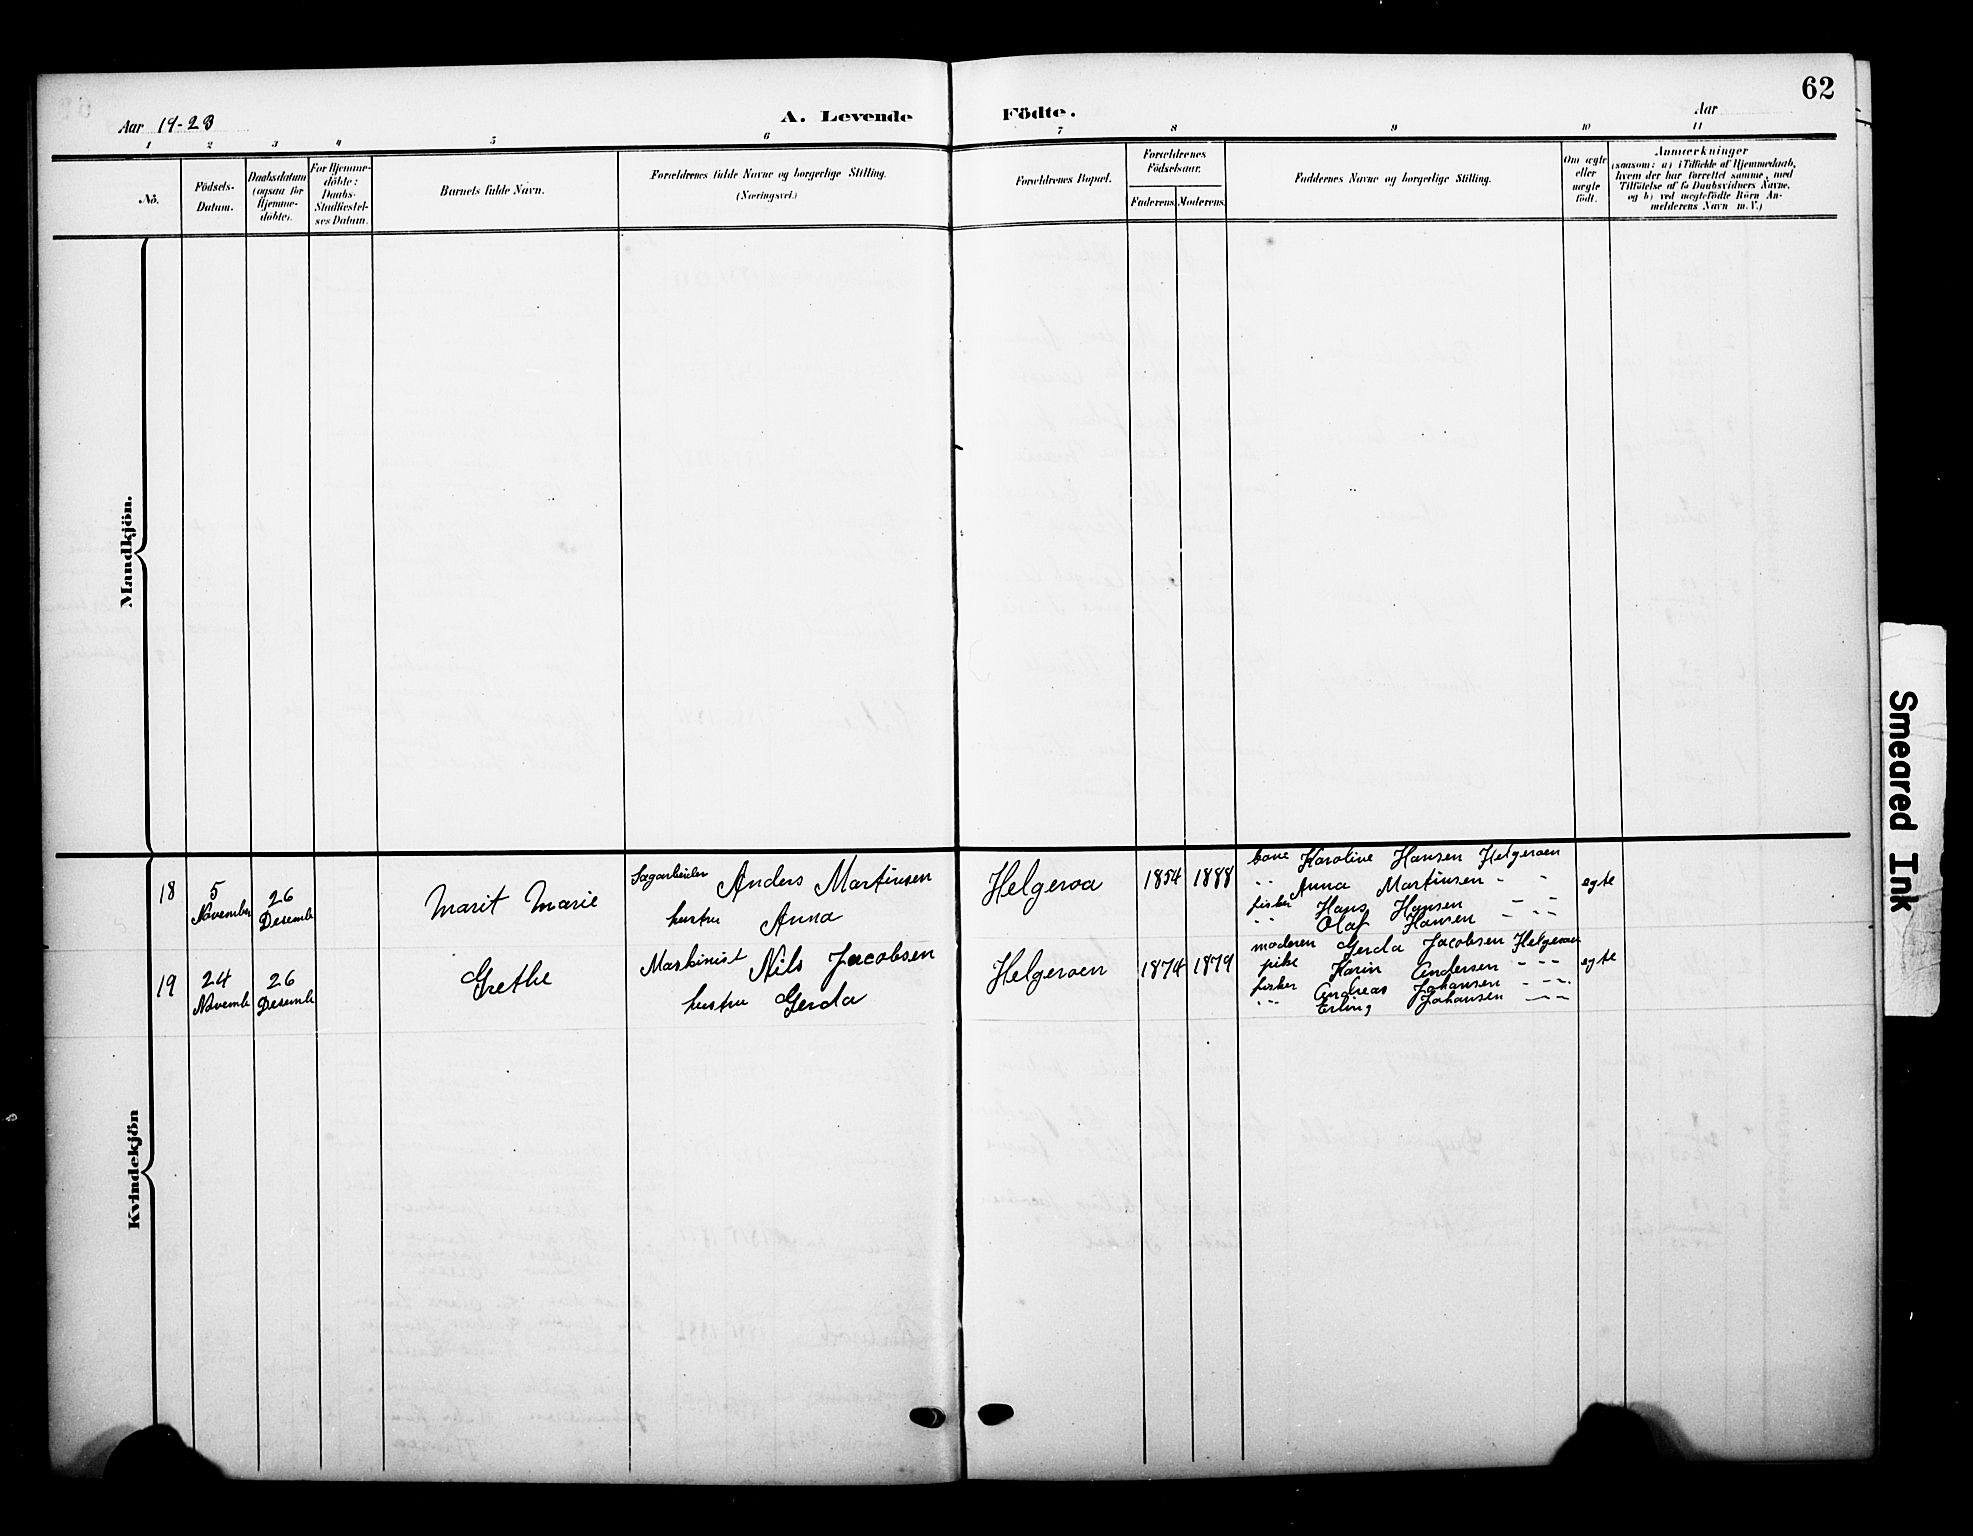 62
Aar 19-23
A. Levende Födte.
Aar
1 2 3 4 5 6 7 8 9 10 11
No.
Födsels-
Datum.
Daabsdatum
(ogsaa for
Hjemme-
döbte).
For Hjemme-
döbte:
Daabs-
Stadfæstel-
ses Datum.
Barnets fulde Navn.
Forældrenes fulde Navne og borgerlige Stilling.
(Næringsvei.)
Forældrenes Bopæl.
Forældrenes
Födselsaar.
Faderens. Moderens.
Faddernes Navne og borgerlige Stilling.
Om ægte
eller
uægte
födt.
Anmærkninger
(saasom: a) i Tilfælde af Hjemmedaab,
hvem der har forrettet samme, med
Tilföielse af to Daabsvidners Navne,
og b) ved uægtefödte Börn An-
melderens Navn m. V.)
Mandkjön.
Kvindekjön
18
5
November
26
Desemb
Marit Marie
Sagarbeider Anders Martinsen
hustru Anna
Helgeroa
1854 1888
kone Karoline Hansen Helgeroen
" Anna Martinsen - -
fisker Hans Hansen - -
" Olaf Hansen - --
egte
19
24
Novemb
26
Desemb
Grethe
Maskinist Nils Jacobsen
hustru Gerda
Helgeroen
1874 1879
moderen Gerda Jacobsen Helgeroen
pike Karin Andersen - --
fisker Andreas Johansen - --
" Erling Johansen ---
egte
Smeared Ink